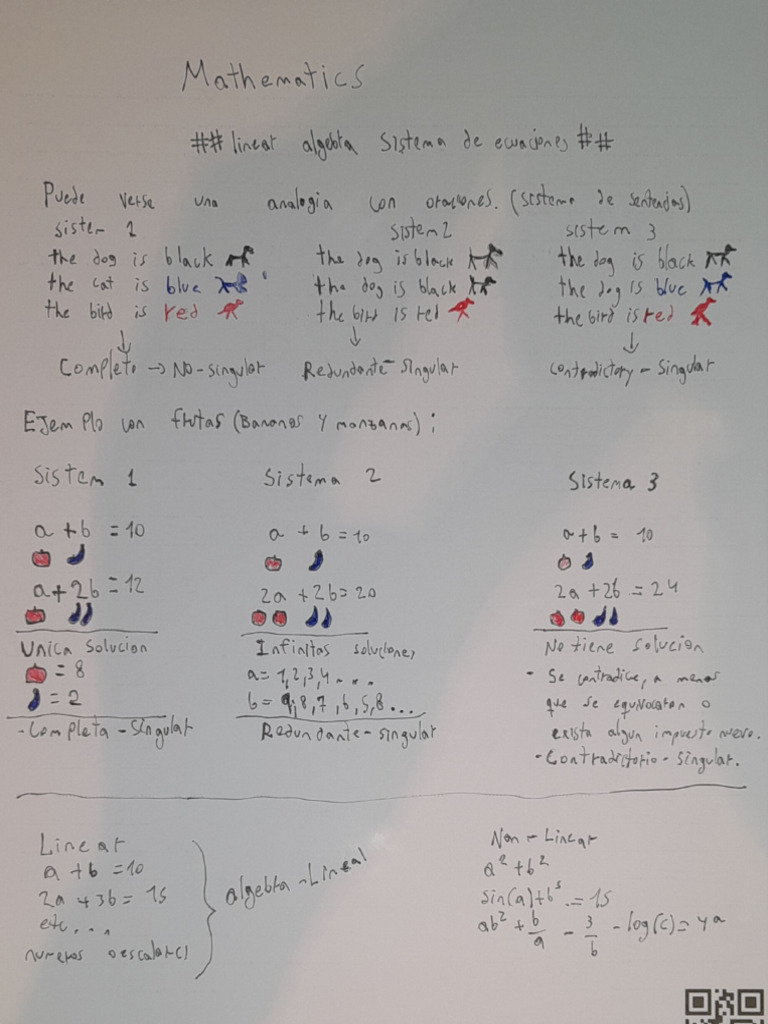 Mathematics
## linear algebra sistema de ecuaciones ##
Puede verse una analogia con oraciones. (sistema de sentencias)
sistem 1
the dog is black
the cat is blue
the bird is red
Completo → No-singular
sistem 2
the dog is black
the dog is black
the bird is red
Redundante - Singular
sistem 3
the dog is black
the dog is blue
the bird is red
Contradictory - Singular
Ejemplo con frutas (Bananas y manzanas):
Sistem 1
a + b = 10
a + 2b = 12
Unica Solucion
= 8
= 2
- Completa - Singular
Sistema 2
a + b = 10
2a + 2b = 20
Infinitas soluciones
a = 1,2,3,4....
b = 9,8,7,6,5,8...
Redundante - singular
Sistema 3
a + b = 10
2a + 2b = 24
No tiene solucion
- Se contradice, a menos
que se equivocaron o
exista algun impuesto nuevo.
- Contradictorio - Singular.
Linear
a + b = 10
2a + 3b = 15
etc....
numeros o escalar(c)
algebra - Lineal
Non - Linear
a² + b²
sin(a) + b⁵ = 15
ab² + b/a - 3/b - log(c) = 4a